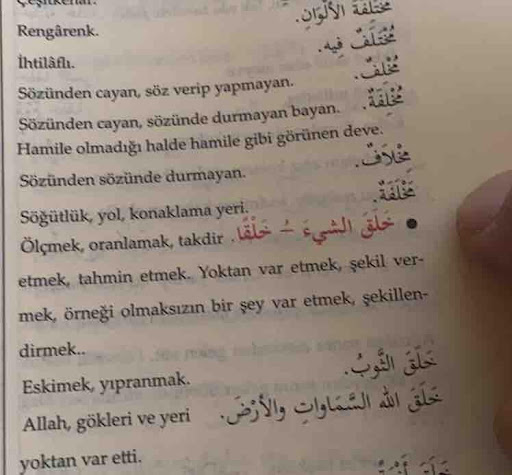 Çeşitkenar.
مُخْتَلِفَةُ الأَلْوَانِ.
Rengârenk.
مُخْتَلَفٌ فِيهِ.
İhtilâflı.
مُخْلِفٌ.
Sözünden cayan, söz verip yapmayan.
مُخْلِفَةٌ.
Sözünden cayan, sözünde durmayan bayan.
Hamile olmadığı halde hamile gibi görünen deve.
مِخْلاَفٌ.
Sözünden sözünde durmayan.
مَخْلَفَةٌ.
Söğütlük, yol, konaklama yeri.
● خَلَقَ الشَّيءَ ـُ خَلْقًا. Ölçmek, oranlamak, takdir
etmek, tahmin etmek. Yoktan var etmek, şekil ver-
mek, örneği olmaksızın bir şey var etmek, şekillen-
dirmek..
خَلَقَ الثَّوْبُ.
Eskimek, yıpranmak.
خَلَقَ اللهُ السَّمَاوَاتِ والأَرْضَ. Allah, gökleri ve yeri
yoktan var etti.